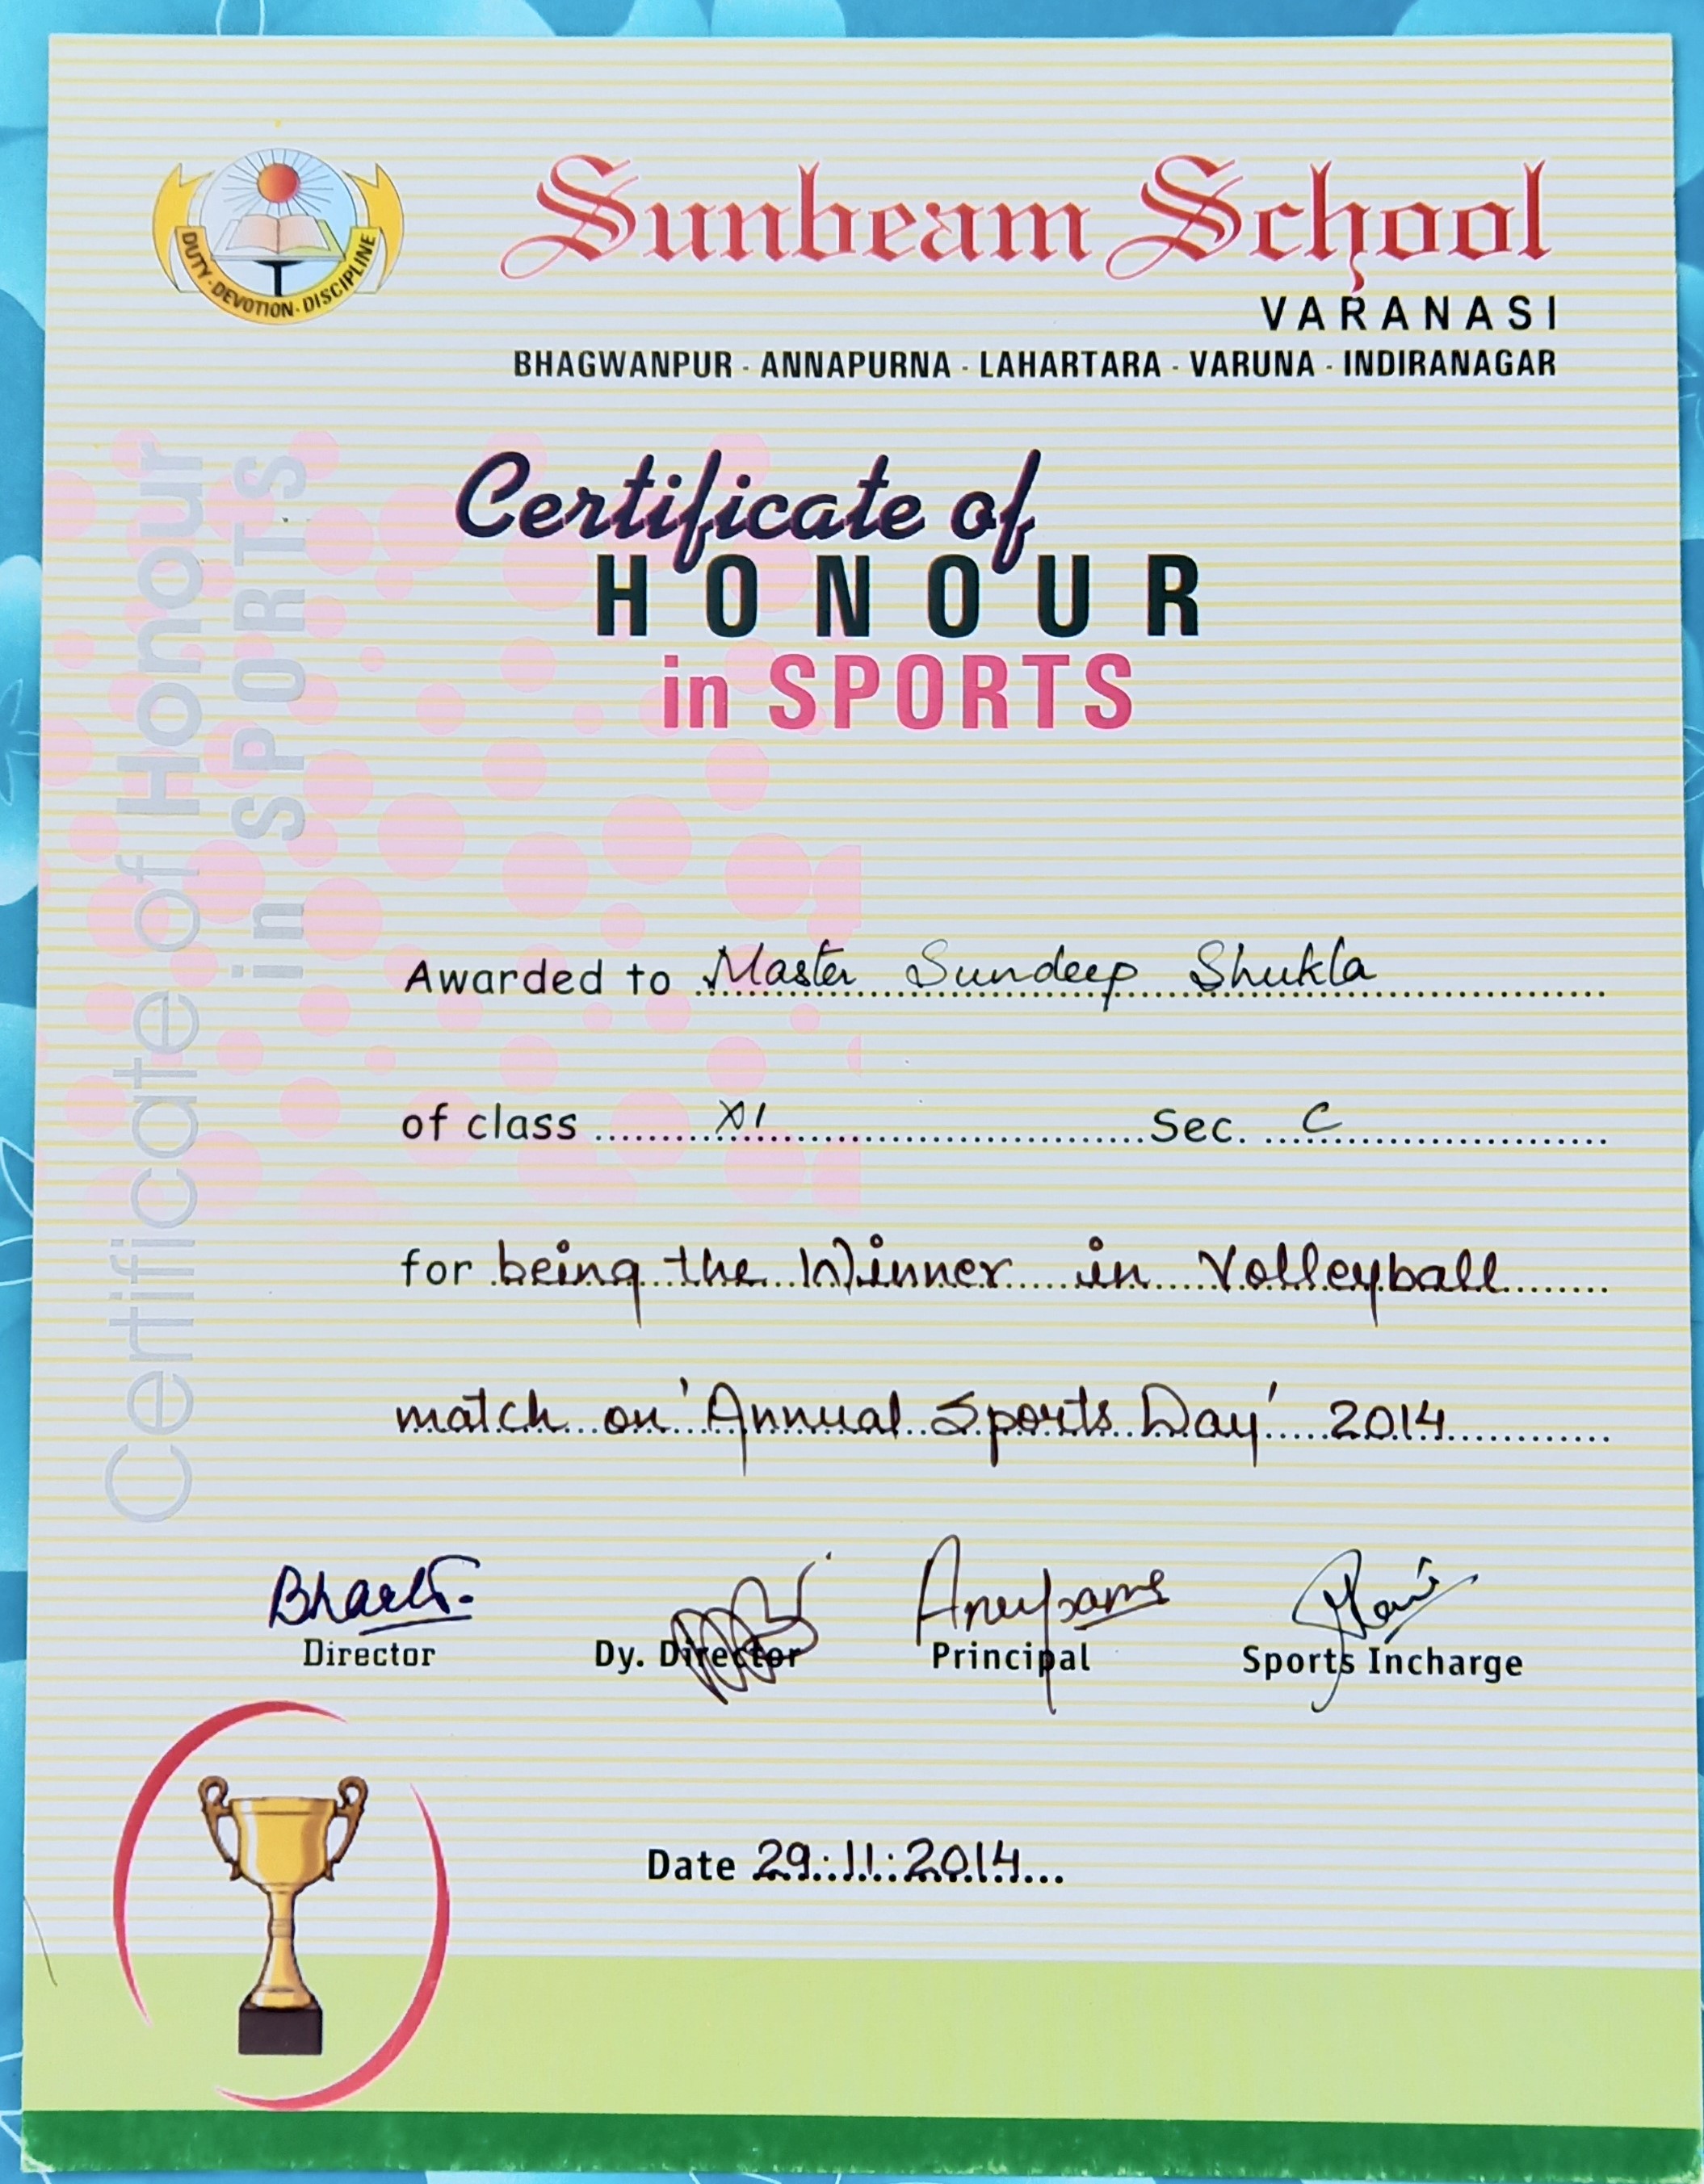 DUTY · DEVOTION · DISCIPLINE
Sunbeam School
VARANASI
BHAGWANPUR - ANNAPURNA - LAHARTARA - VARUNA - INDIRANAGAR
Certificate of
HONOUR
in SPORTS
Certificate of Honour
in SPORTS
Awarded to Master Sundeep Shukla
of class XI Sec. C
for being the Winner in Volleyball
match on 'Annual Sports Day' 2014
Bharti Anupama
Director Dy. Director Principal Sports Incharge
Date 29.11.2014